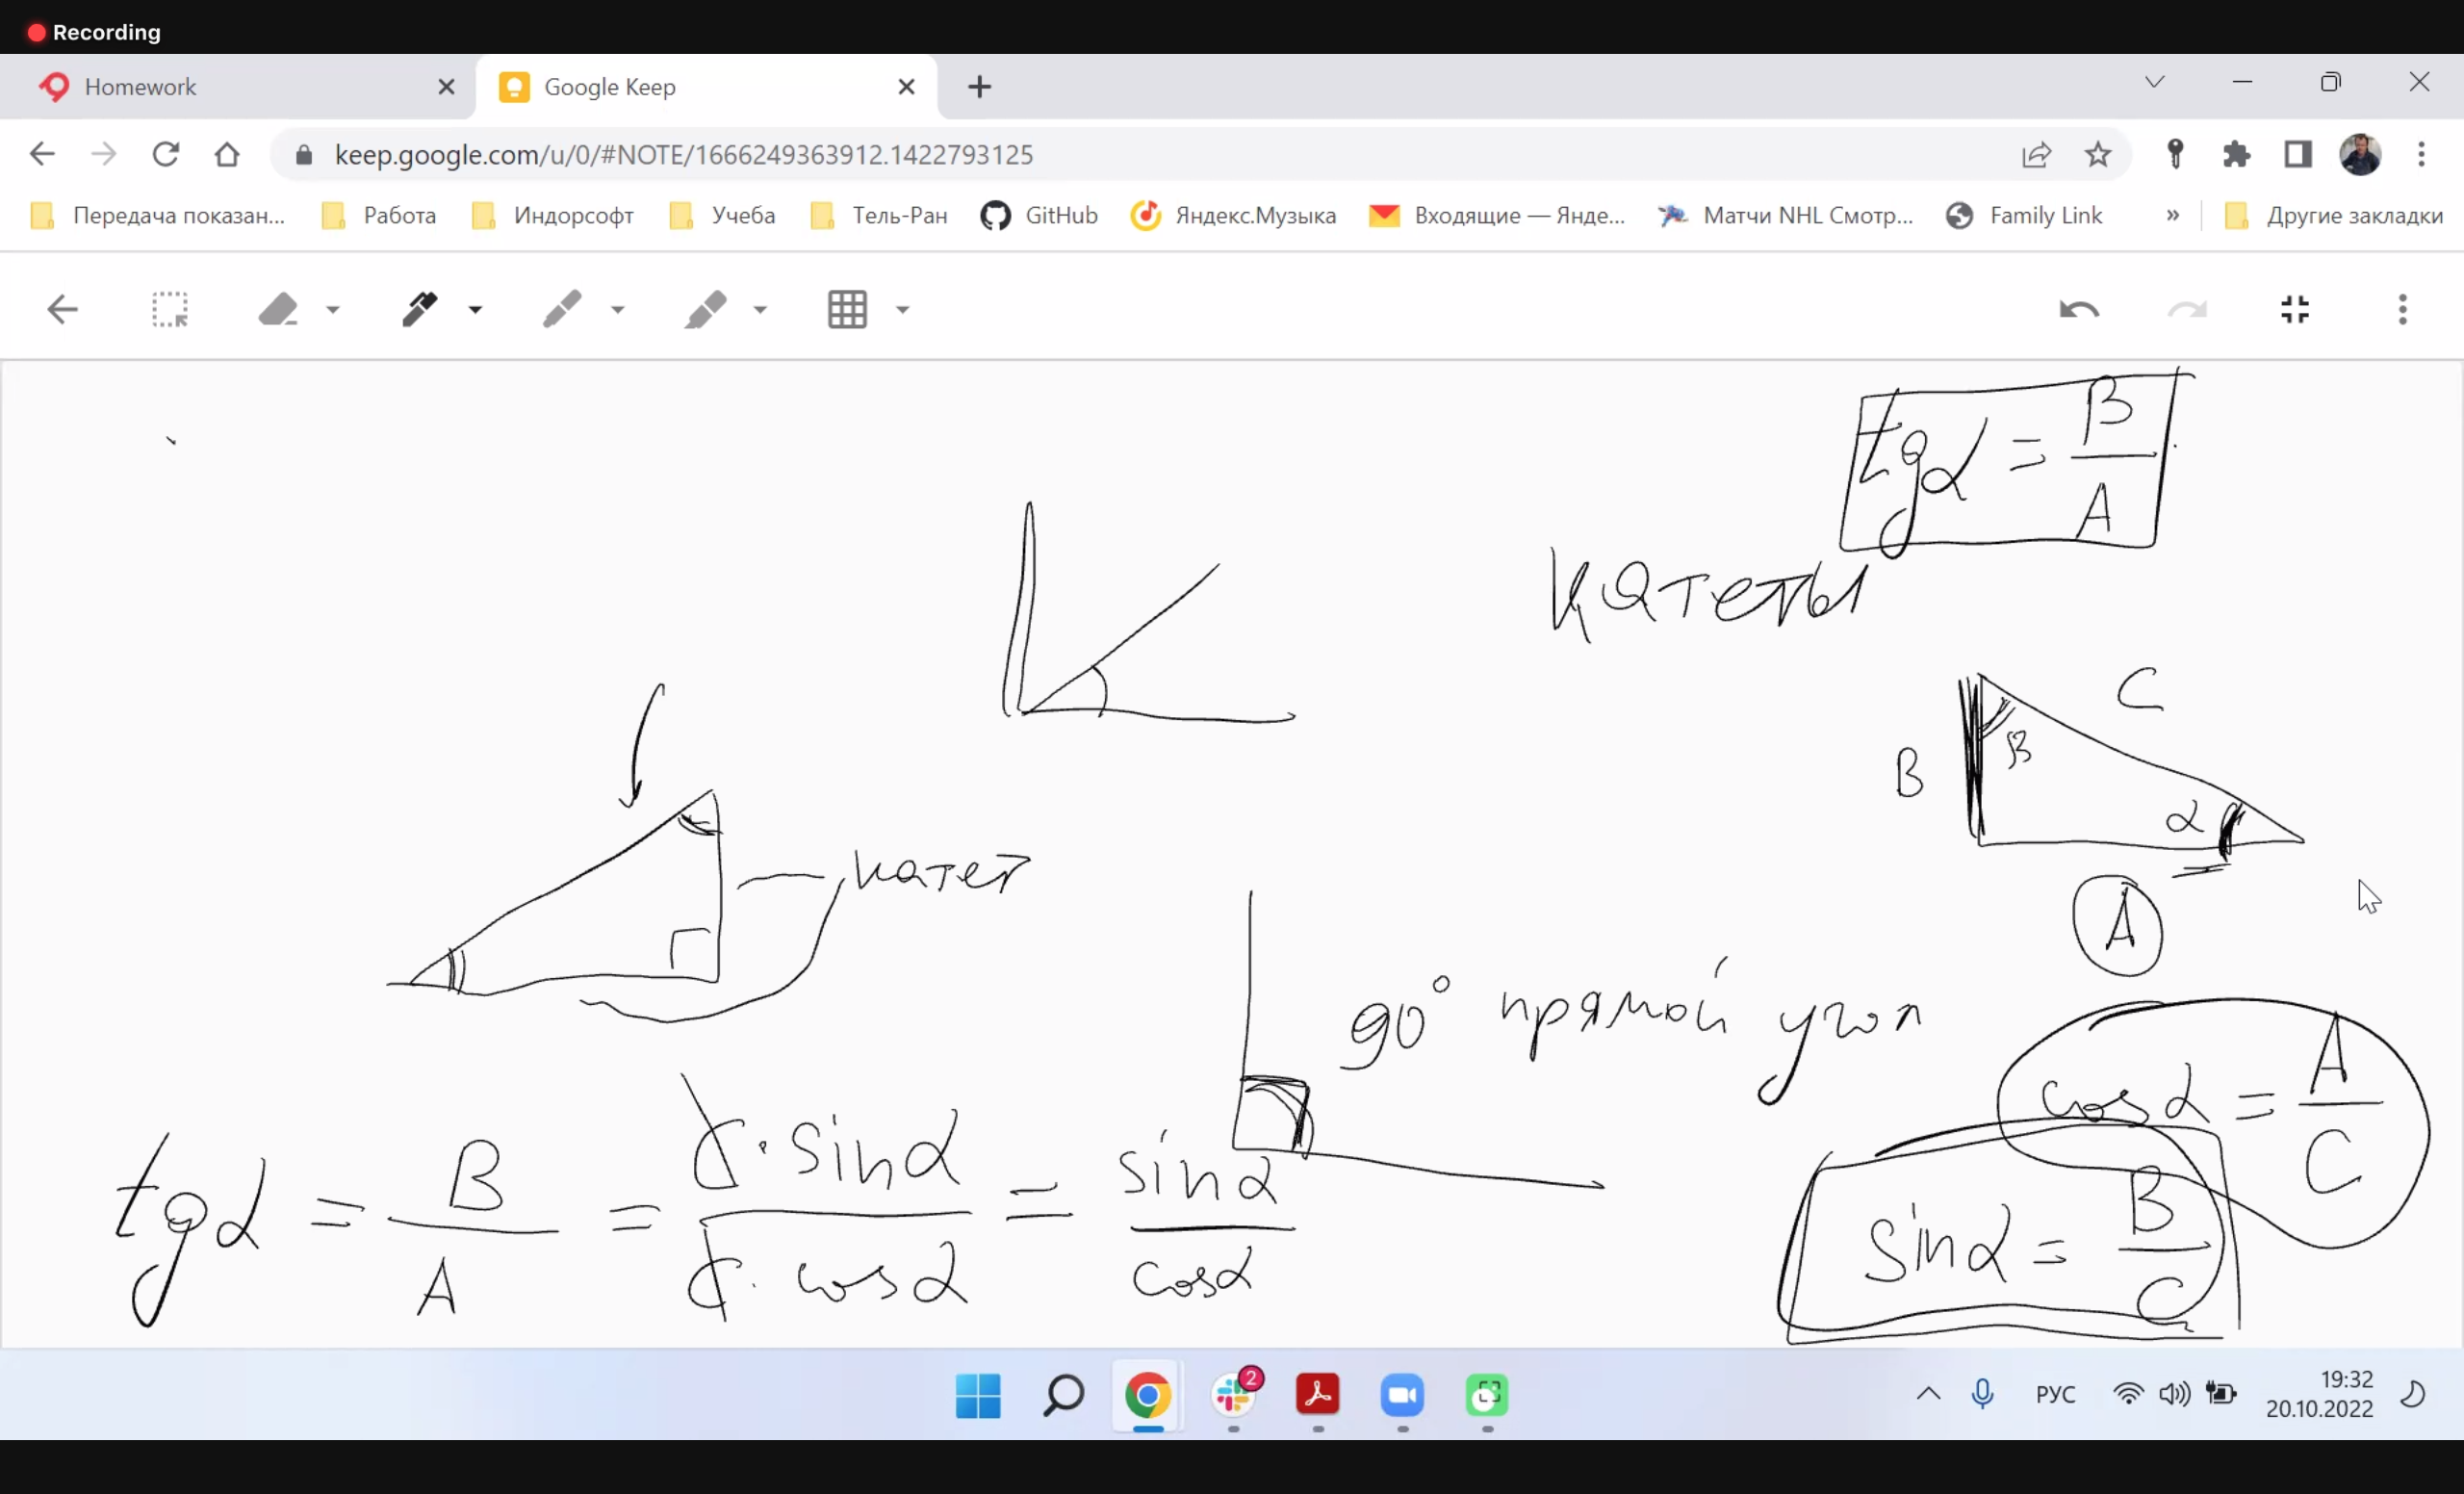 Recording
Homework
Google Keep
keep.google.com/u/0/#NOTE/1666249363912.1422793125
Передача показан...
Работа
Индорсофт
Учеба
Тель-Ран
GitHub
Яндекс.Музыка
Входящие — Янде...
Матчи NHL Смотр...
Family Link
»
Другие закладки
tgα = B/A
катеты
C
B
β
α
A
катет
90° прямой угол
cosα = A/C
tgα = B/A = C·sinα/C·cosα = sinα/cosα
sinα = B/C
2
РУС
19:32
20.10.2022